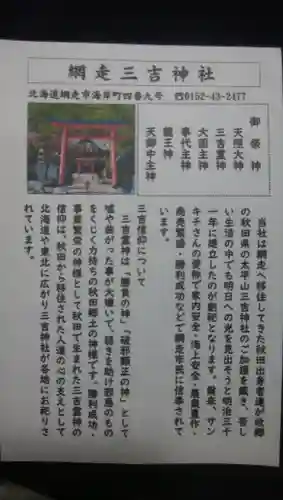 網走三吉神社
北海道網走市海岸町四番九号 ☎0152-43-2477
御祭神
天照大神
三吉霊神
大国主神
事代主神
龍王神
天御中主神
当社は網走へ移住してきた秋田出身者達が故郷
の秋田県の太平山三吉神社のご分霊を戴き、苦し
い生活の中でも明日への光を見出そうと明治三十
一年に建立したのが創祀となります。爾来、サン
キチさんの愛称で家内安全・海上安全・農畜豊作・
商売繁盛・勝利成功などで網走市民に信奉されて
います。
三吉信仰について
三吉霊神は「勝負の神」「破邪顕正の神」として
嘘や曲がった事が大嫌いで、弱きを助け邪悪のもの
をくじく力持ちの秋田郷土の神様です。勝利成功・
事業繁栄の神様として秋田で生まれた三吉霊神の
信仰は、秋田から移住された人達の心の支えとして
北海道や東北に広がり三吉神社が各地にお祀りさ
れています。